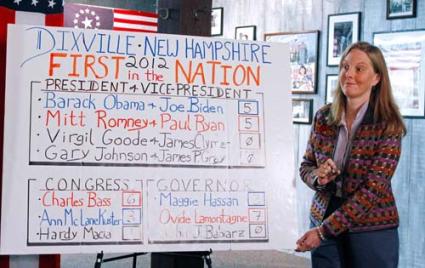 DIXVILLE · NEW HAMPSHIRE
FIRST 2012 in the NATION
PRESIDENT + VICE-PRESIDENT
Barack Obama + Joe Biden 5
Mitt Romney + Paul Ryan 5
Virgil Goode + James Clymer 0
Gary Johnson + James P Gray 0
CONGRESS
Charles Bass 6
Ann McLane Kuster
Hardy Macia
GOVERNOR
Maggie Hassan
Ovide Lamontagne 7
J Babiarz 0